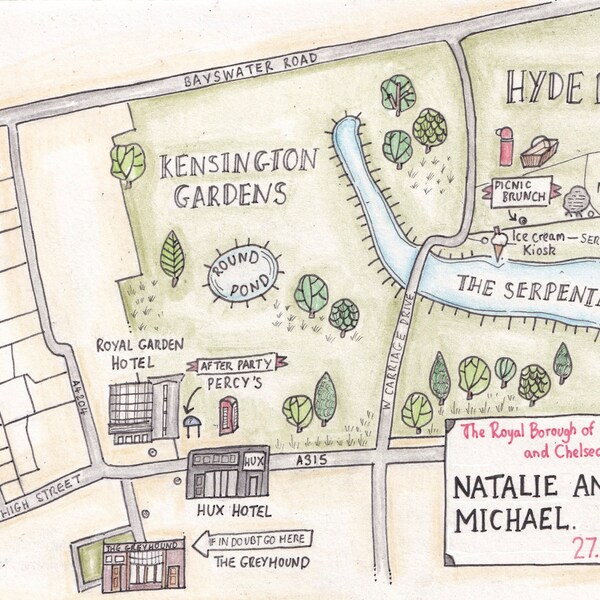 BAYSWATER ROAD
HYDE
KENSINGTON
GARDENS
PICNIC
BRUNCH
Ice cream
Kiosk
ROUND
POND
THE SERPENT
W CARRIAGE DRIVE
ROYAL GARDEN
HOTEL
AFTER PARTY
PERCY'S
A4204
HUX
A315
HIGH STREET
HUX HOTEL
The Royal Borough of
and Chelsea
NATALIE AN
MICHAEL.
27.
THE GREYHOUND
IF IN DOUBT GO HERE
THE GREYHOUND